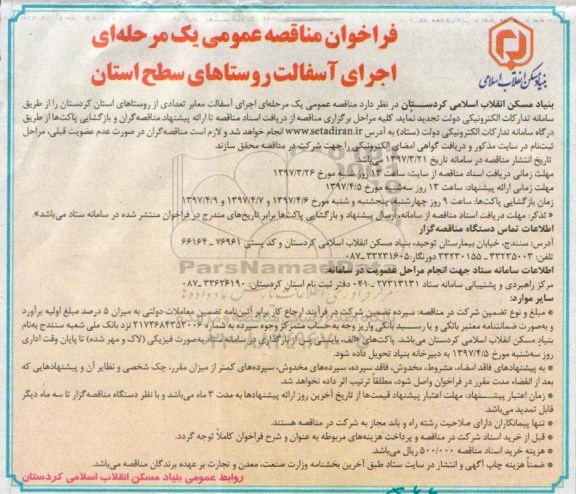 فراخوان مناقصه عمومی یک مرحله‌ای
اجرای آسفالت روستاهای سطح استان
بنیاد مسکن انقلاب اسلامی
بنیاد مسکن انقلاب اسلامی کردستان در نظر دارد مناقصه عمومی یک مرحله‌ای اجرای آسفالت معابر تعدادی از روستاهای استان کردستان را از طریق
سامانه تدارکات الکترونیکی دولت تجدید نماید. کلیه مراحل برگزاری مناقصه از دریافت اسناد مناقصه تا ارائه پیشنهاد مناقصه‌گران و بازگشایی پاکت‌ها از طریق
درگاه سامانه تدارکات الکترونیکی دولت (ستاد) به آدرس www.setadiran.ir انجام خواهد شد و لازم است مناقصه‌گران در صورت عدم عضویت قبلی، مراحل
ثبت‌نام در سایت مذکور و دریافت گواهی امضای الکترونیکی را جهت شرکت در مناقصه محقق سازند.
تاریخ انتشار مناقصه در سامانه تاریخ ۱۳۹۷/۳/۲۱ می‌باشد.
مهلت زمانی دریافت اسناد مناقصه از سایت: ساعت ۱۳ روز شنبه مورخ ۱۳۹۷/۳/۲۶
مهلت زمانی ارائه پیشنهاد: ساعت ۱۳ روز سه‌شنبه مورخ ۱۳۹۷/۴/۵
زمان بازگشایی پاکت‌ها: ساعت ۹ روز چهارشنبه، پنجشنبه و شنبه مورخ ۱۳۹۷/۴/۶ و ۱۳۹۷/۴/۷ و ۱۳۹۷/۴/۹
«تذکر: مهلت دریافت اسناد مناقصه از سامانه، ارسال پیشنهاد و بازگشایی پاکت‌ها برابر تاریخ‌های مندرج در فراخوان منتشر شده در سامانه ستاد می‌باشد».
اطلاعات تماس دستگاه مناقصه‌گزار
آدرس: سنندج، خیابان بیمارستان توحید، بنیاد مسکن انقلاب اسلامی کردستان و کد پستی ۷۶۹۶۱ - ۶۶۱۶۴
تلفن: ۳۳۲۳۵۰۰۳ - ۳۳۲۳۰۱۵۵ دورنگار: ۳۳۲۳۱۶۰۵-۰۸۷
اطلاعات سامانه ستاد جهت انجام مراحل عضویت در سامانه:
مرکز راهبردی و پشتیبانی سامانه ستاد ۲۷۳۱۳۱۳۱ـ۰۲۱ دفتر ثبت نام استان کردستان: ۳۳۶۲۶۱۹۰ـ۰۸۷
سایر موارد:
* مبلغ و نوع تضمین شرکت در مناقصه: سپرده تضمین شرکت در فرآیند ارجاع کار برابر آئین‌نامه تضمین معاملات دولتی به میزان ۵ درصد مبلغ اولیه برآورد
و به‌صورت ضمانتنامه معتبر بانکی و یا رسید بانکی واریز وجه به حساب متمرکز وجوه سپرده به شماره ۲۱۷۳۶۸۴۳۵۳۰۰۶ نزد بانک ملی شعبه سنندج به‌نام
بنیاد مسکن انقلاب اسلامی کردستان می‌باشد. پاکت‌های «الف» بایستی پس از بارگذاری در سامانه، به‌صورت فیزیکی (لاک و مهر شده) تا پایان وقت اداری
روز سه‌شنبه مورخ ۱۳۹۷/۴/۵ به دبیرخانه بنیاد تحویل داده شود.
* به پیشنهادهای فاقد امضاء، مشروط، مخدوش، فاقد سپرده، سپرده‌های مخدوش، سپرده‌های کمتر از میزان مقرر، چک شخصی و نظایر آن و پیشنهادهایی که
بعد از انقضاء مدت مقرر در فراخوان واصل شود، مطلقاً ترتیب اثر داده نخواهد شد.
* مهلت اعتبار پیشنهاد: مهلت اعتبار پیشنهاد قیمت‌ها از تاریخ آخرین روز ارائه پیشنهادها به مدت ۳ ماه می‌باشد و با نظر دستگاه مناقصه‌گزار تا سه ماه دیگر
قابل تمدید می‌باشد.
* تنها پیمانکاران دارای صلاحیت رشته راه و باند مجاز به شرکت در مناقصه هستند.
* قبل از خرید اسناد شرکت در مناقصه و پرداخت هزینه‌های مربوطه به عنوان و شرح فراخوان کاملاً توجه گردد.
* هزینه خرید اسناد مناقصه ۵۰۰/۰۰۰ ریال می‌باشد.
* ضمناً هزینه چاپ آگهی و انتشار در سایت ستاد طبق آخرین بخشنامه وزارت صنعت، معدن و تجارت بر عهده برندگان مناقصه می‌باشد.
روابط عمومی بنیاد مسکن انقلاب اسلامی کردستان
ParsNamadData